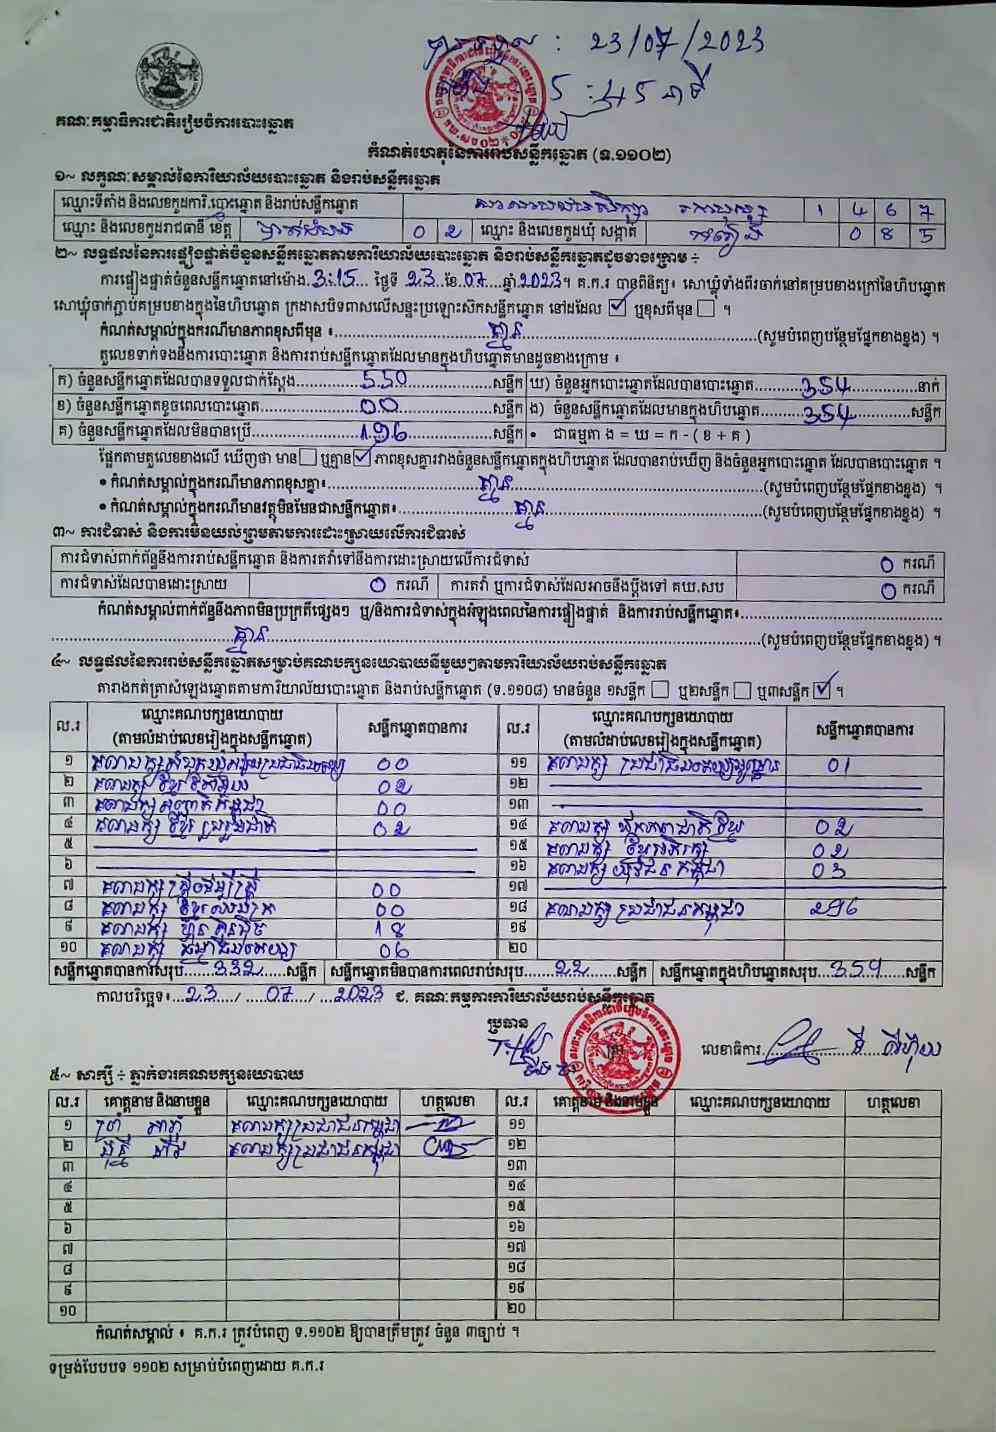 23/07/2023
5:45 នាទី
គណៈកម្មាធិការជាតិរៀបចំការបោះឆ្នោត
កំណត់ហេតុនៃការរាប់សន្លឹកឆ្នោត (ទ.១១០២)
១~ លក្ខណៈសម្គាល់នៃការិយាល័យបោះឆ្នោត និងរាប់សន្លឹកឆ្នោត
ឈ្មោះទីតាំង និងលេខកូដការិ.បោះឆ្នោត និងរាប់សន្លឹកឆ្នោត 1 4 6 7
ឈ្មោះ និងលេខកូដរាជធានី ខេត្ត បាត់ដំបង 0 2 ឈ្មោះ និងលេខកូដឃុំ សង្កាត់ 0 8 5
២~ លទ្ធផលនៃការផ្ទៀងផ្ទាត់ចំនួនសន្លឹកឆ្នោតតាមការិយាល័យបោះឆ្នោត និងរាប់សន្លឹកឆ្នោតដូចខាងក្រោម ÷
ការផ្ទៀងផ្ទាត់ចំនួនសន្លឹកឆ្នោតនៅម៉ោង 3:15 ថ្ងៃទី 23 ខែ 07 ឆ្នាំ 2023។ គ.ក.រ បានពិនិត្យ៖ សោឃ្លុំទាំងពីរចាក់នៅគម្របខាងក្រៅនៃហិបឆ្នោត
សោឃ្លុំចាក់ភ្ជាប់គម្របខាងក្នុងនៃហិបឆ្នោត ក្រដាសបិទពាសលើសន្ទះប្រឡោះសិកសន្លឹកឆ្នោត នៅដដែល ☑ ឬខុសពីមុន ☐ ។
កំណត់សម្គាល់ក្នុងករណីមានភាពខុសពីមុន ៖ គ្មាន (សូមបំពេញបន្ថែមផ្នែកខាងខ្នង) ។
តួលេខទាក់ទងនឹងការបោះឆ្នោត និងការរាប់សន្លឹកឆ្នោតដែលមានក្នុងហិបឆ្នោតមានដូចខាងក្រោម ៖
ក) ចំនួនសន្លឹកឆ្នោតដែលបានទទួលជាក់ស្តែង 550 សន្លឹក ឃ) ចំនួនអ្នកបោះឆ្នោតដែលបានបោះឆ្នោត 354 នាក់
ខ) ចំនួនសន្លឹកឆ្នោតខូចពេលបោះឆ្នោត 00 សន្លឹក ង) ចំនួនសន្លឹកឆ្នោតដែលមានក្នុងហិបឆ្នោត 354 សន្លឹក
គ) ចំនួនសន្លឹកឆ្នោតដែលមិនបានប្រើ 196 សន្លឹក • ជាធម្មតា ង = ឃ = ក - ( ខ + គ )
ផ្អែកតាមតួលេខខាងលើ ឃើញថា មាន ☐ ឬគ្មាន ☑ ភាពខុសគ្នារវាងចំនួនសន្លឹកឆ្នោតក្នុងហិបឆ្នោត ដែលបានរាប់ឃើញ និងចំនួនអ្នកបោះឆ្នោត ដែលបានបោះឆ្នោត ។
• កំណត់សម្គាល់ក្នុងករណីមានភាពខុសគ្នា៖ គ្មាន (សូមបំពេញបន្ថែមផ្នែកខាងខ្នង) ។
• កំណត់សម្គាល់ក្នុងករណីមានវត្ថុមិនមែនជាសន្លឹកឆ្នោត៖ គ្មាន (សូមបំពេញបន្ថែមផ្នែកខាងខ្នង) ។
៣~ ការជំទាស់ និងការមិនយល់ព្រមតាមការដោះស្រាយលើការជំទាស់
ការជំទាស់ពាក់ព័ន្ធនឹងការរាប់សន្លឹកឆ្នោត និងការតវ៉ាទៅនឹងការដោះស្រាយលើការជំទាស់ 0 ករណី
ការជំទាស់ដែលបានដោះស្រាយ 0 ករណី ការតវ៉ា ឬការជំទាស់ដែលអាចនឹងប្តឹងទៅ គឃ.សប 0 ករណី
កំណត់សម្គាល់ពាក់ព័ន្ធនឹងភាពមិនប្រក្រតីផ្សេងៗ ឬ/និងការជំទាស់ក្នុងអំឡុងពេលនៃការផ្ទៀងផ្ទាត់ និងការរាប់សន្លឹកឆ្នោត៖
គ្មាន (សូមបំពេញបន្ថែមផ្នែកខាងខ្នង) ។
៤~ លទ្ធផលនៃការរាប់សន្លឹកឆ្នោតសម្រាប់គណបក្សនយោបាយនីមួយៗតាមការិយាល័យរាប់សន្លឹកឆ្នោត
តារាងកត់ត្រាសំឡេងឆ្នោតតាមការិយាល័យបោះឆ្នោត និងរាប់សន្លឹកឆ្នោត (ទ.១១០៨) មានចំនួន ១សន្លឹក ☐ ឬ២សន្លឹក ☐ ឬ៣សន្លឹក ☑ ។
ល.រ ឈ្មោះគណបក្សនយោបាយ (តាមលំដាប់លេខរៀងក្នុងសន្លឹកឆ្នោត) សន្លឹកឆ្នោតបានការ ល.រ ឈ្មោះគណបក្សនយោបាយ (តាមលំដាប់លេខរៀងក្នុងសន្លឹកឆ្នោត) សន្លឹកឆ្នោតបានការ
១ 00 ១១ 01
២ 02 ១២
៣ 00 ១៣
៤ 02 ១៤ 02
៥ ១៥ 02
៦ ១៦ គណបក្ស យុវជន កម្ពុជា 03
៧ គណបក្ស ស្ត្រីដើម្បីស្ត្រី 00 ១៧
៨ 00 ១៨ គណបក្ស ប្រជាជនកម្ពុជា 296
៩ គណបក្ស ហ៊្វុនស៊ិនប៉ិច 18 ១៩
១០ គណបក្ស 06 ២០
សន្លឹកឆ្នោតបានការសរុប 332 សន្លឹក សន្លឹកឆ្នោតមិនបានការពេលរាប់សរុប 22 សន្លឹក សន្លឹកឆ្នោតក្នុងហិបឆ្នោតសរុប 354 សន្លឹក
កាលបរិច្ឆេទ៖ 23 / 07 / 2023 ជ. គណៈកម្មការការិយាល័យរាប់សន្លឹកឆ្នោត
ប្រធាន
លេខាធិការ
៥~ សាក្សី ÷ ភ្នាក់ងារគណបក្សនយោបាយ
ល.រ គោត្តនាម និងនាមខ្លួន ឈ្មោះគណបក្សនយោបាយ ហត្ថលេខា ល.រ គោត្តនាម និងនាមខ្លួន ឈ្មោះគណបក្សនយោបាយ ហត្ថលេខា
១ គណបក្សប្រជាជនកម្ពុជា ១១
២ គណបក្សប្រជាជនកម្ពុជា ១២
៣ ១៣
៤ ១៤
៥ ១៥
៦ ១៦
៧ ១៧
៨ ១៨
៩ ១៩
១០ ២០
កំណត់សម្គាល់ ៖ គ.ក.រ ត្រូវបំពេញ ទ.១១០២ ឱ្យបានត្រឹមត្រូវ ចំនួន ៣ច្បាប់ ។
ទម្រង់បែបបទ ១១០២ សម្រាប់បំពេញដោយ គ.ក.រ